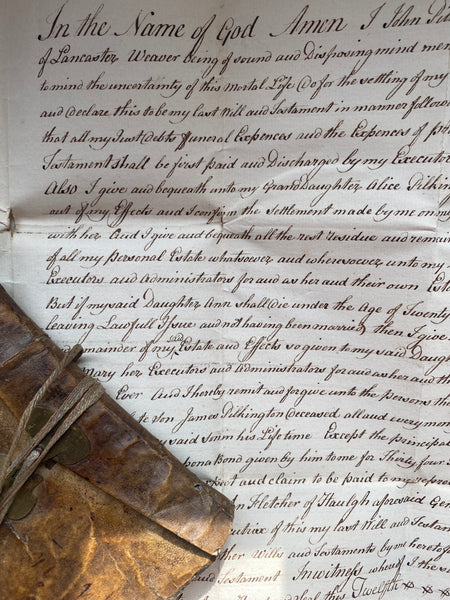 In the Name of God Amen I John Pil
of Lancaster Weaver being of sound and Disposing mind mem
to mind the uncertainty of this Mortal Life Do for the settling of my
and declare this to be my last Will and Testament in manner follow
that all my Just Debts Funeral Expences and the Expences of pr
Testament shall be first paid and Discharged by my Executor
Also I give and bequeath unto my Grand Daughter Alice Pilking
out of my Effects and I confirm the Settlement made by me on my
with her And I give and bequeath all the rest residue and remain
of all my Personal Estate whatsoever and wheresoever unto my
Executors and Administrators for and as her and their own Esta
But if my said Daughter Ann shall Die under the Age of Twenty
leaving Lawfull Issue and not having been married then I give
remainder of my said Estate and Effects so given to my said Daugh
Mary her Executors and Administrators for and as her and th
Ever And I hereby remit and forgive unto the Persons th
late Son James Pilkington Deceased all and every mon
my said Son in his Life time Except the Principal
upon a Bond given by him to me for Thirty four
pect and claim to be paid to my repres
Fletcher of Haulgh aforesaid Gen
cutrix of this my last Will and Testam
ther Wills and Testaments by me heretofo
and Testament In witness whereof I the s
Seal this Twelfth